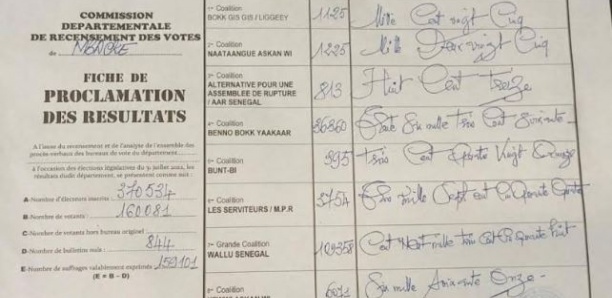 COMMISSION
DEPARTEMENTALE
DE RECENSEMENT DES VOTES
de MBACKE
FICHE DE
PROCLAMATION
DES RESULTATS
A l'issue du recensement et de l'analyse de l'ensemble des
procès-verbaux des bureaux de vote du département
à l'occasion des élections législatives du 31 juillet 2022, les
résultats dudit département, se présentent comme suit :
A-Nombre d'électeurs inscrits : 370534
B-Nombre de votants : 160081
C-Nombre de votants hors bureau originel :
D-Nombre de bulletins nuls : 844
E-Nombre de suffrages valablement exprimés : 159101
(E = B - D)
Coalition
BOKK GIS GIS / LIGGEEY
1125
Mille Cent vingt Cinq
Coalition
NAATAANGUE ASKAN WI
1225
Mille Deux vingt Cinq
Coalition
ALTERNATIVE POUR UNE
ASSEMBLEE DE RUPTURE
/ AAR SENEGAL
813
Huit Cent Treize
Coalition
BENNO BOKK YAAKAAR
36360
Six mille Trois Cent Soixante
Coalition
BUNT-BI
395
Trois Cent Quatre Vingt Quinze
Coalition
LES SERVITEURS / M.P.R
3754
Trois mille Sept cent Cinquante Quatre
Grande Coalition
WALLU SENEGAL
109358
Cent Neuf mille Trois Cent Cinquante huit
Coalition
6071
Six mille Soixante Onze